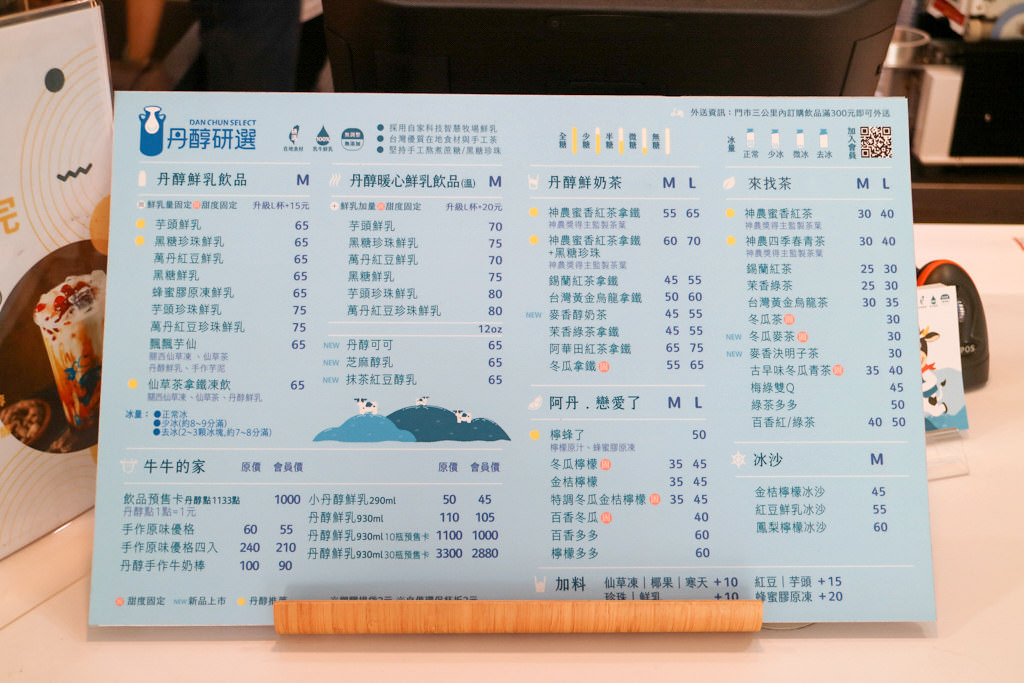 DAN CHUN SELECT
丹醇研選
在地食材
乳牛鮮乳
無調整
無添加
●採用自家科技智慧牧場鮮乳
●台灣優質在地食材與手工茶
●堅持手工熬煮蔗糖/黑糖珍珠
外送資訊：門市三公里內訂購飲品滿300元即可外送
全糖 少糖 半糖 微糖 無糖
冰量 正常 少冰 微冰 去冰
加入會員
丹醇鮮乳飲品 M
鮮乳量固定 固 甜度固定 升級L杯+15元
芋頭鮮乳 65
黑糖珍珠鮮乳 65
萬丹紅豆鮮乳 65
黑糖鮮乳 65
蜂蜜膠原凍鮮乳 65
芋頭珍珠鮮乳 75
萬丹紅豆珍珠鮮乳 75
飄飄芋仙 65
關西仙草凍、仙草茶
丹醇鮮乳、手作芋泥
仙草茶拿鐵凍飲 65
關西仙草凍、仙草茶、丹醇鮮乳
冰量：●正常冰
●少冰(約8~9分滿)
●去冰(2~3顆冰塊,約7~8分滿)
丹醇暖心鮮乳飲品(溫) M
鮮乳加量 固 甜度固定 升級L杯+20元
芋頭鮮乳 70
黑糖珍珠鮮乳 75
萬丹紅豆鮮乳 70
黑糖鮮乳 75
芋頭珍珠鮮乳 80
萬丹紅豆珍珠鮮乳 80
12oz
NEW 丹醇可可 65
NEW 芝麻醇乳 65
NEW 抹茶紅豆醇乳 65
牛牛的家 原價 會員價
飲品預售卡丹醇點1133點 1000
丹醇點1點=1元
手作原味優格 60 55
手作原味優格四入 240 210
丹醇手作牛奶棒 100 90
原價 會員價
小丹醇鮮乳290ml 50 45
丹醇鮮乳930ml 110 105
丹醇鮮乳930ml10瓶預售卡 1100 1000
丹醇鮮乳930ml30瓶預售卡 3300 2880
固 甜度固定 NEW 新品上市 丹醇推薦
丹醇鮮奶茶 M L
神農蜜香紅茶拿鐵 55 65
神農獎得主監製茶葉
神農蜜香紅茶拿鐵 60 70
+黑糖珍珠
神農獎得主監製茶葉
錫蘭紅茶拿鐵 45 55
台灣黃金烏龍拿鐵 50 60
NEW 麥香醇奶茶 45 55
茉香綠茶拿鐵 45 55
阿華田紅茶拿鐵 65 75
冬瓜拿鐵 固 55 65
阿丹．戀愛了 M L
檸蜂了 50
檸檬原汁、蜂蜜膠原凍
冬瓜檸檬 固 35 45
金桔檸檬 35 45
特調冬瓜金桔檸檬 固 35 45
百香冬瓜 固 40
百香多多 60
檸檬多多 60
來找茶 M L
神農蜜香紅茶 30 40
神農獎得主監製茶葉
神農四季春青茶 30 40
神農獎得主監製茶葉
錫蘭紅茶 25 30
茉香綠茶 25 30
台灣黃金烏龍茶 30 35
冬瓜茶 固 30
NEW 冬瓜麥茶 固 30
NEW 麥香決明子茶 30
古早味冬瓜青茶 固 35 40
梅綠雙Q 45
綠茶多多 50
百香紅/綠茶 40 50
冰沙 M
金桔檸檬冰沙 45
紅豆鮮乳冰沙 55
鳳梨檸檬冰沙 60
加料 仙草凍｜椰果｜寒天 +10 紅豆｜芋頭 +15
珍珠｜鮮乳 +10 蜂蜜膠原凍 +20